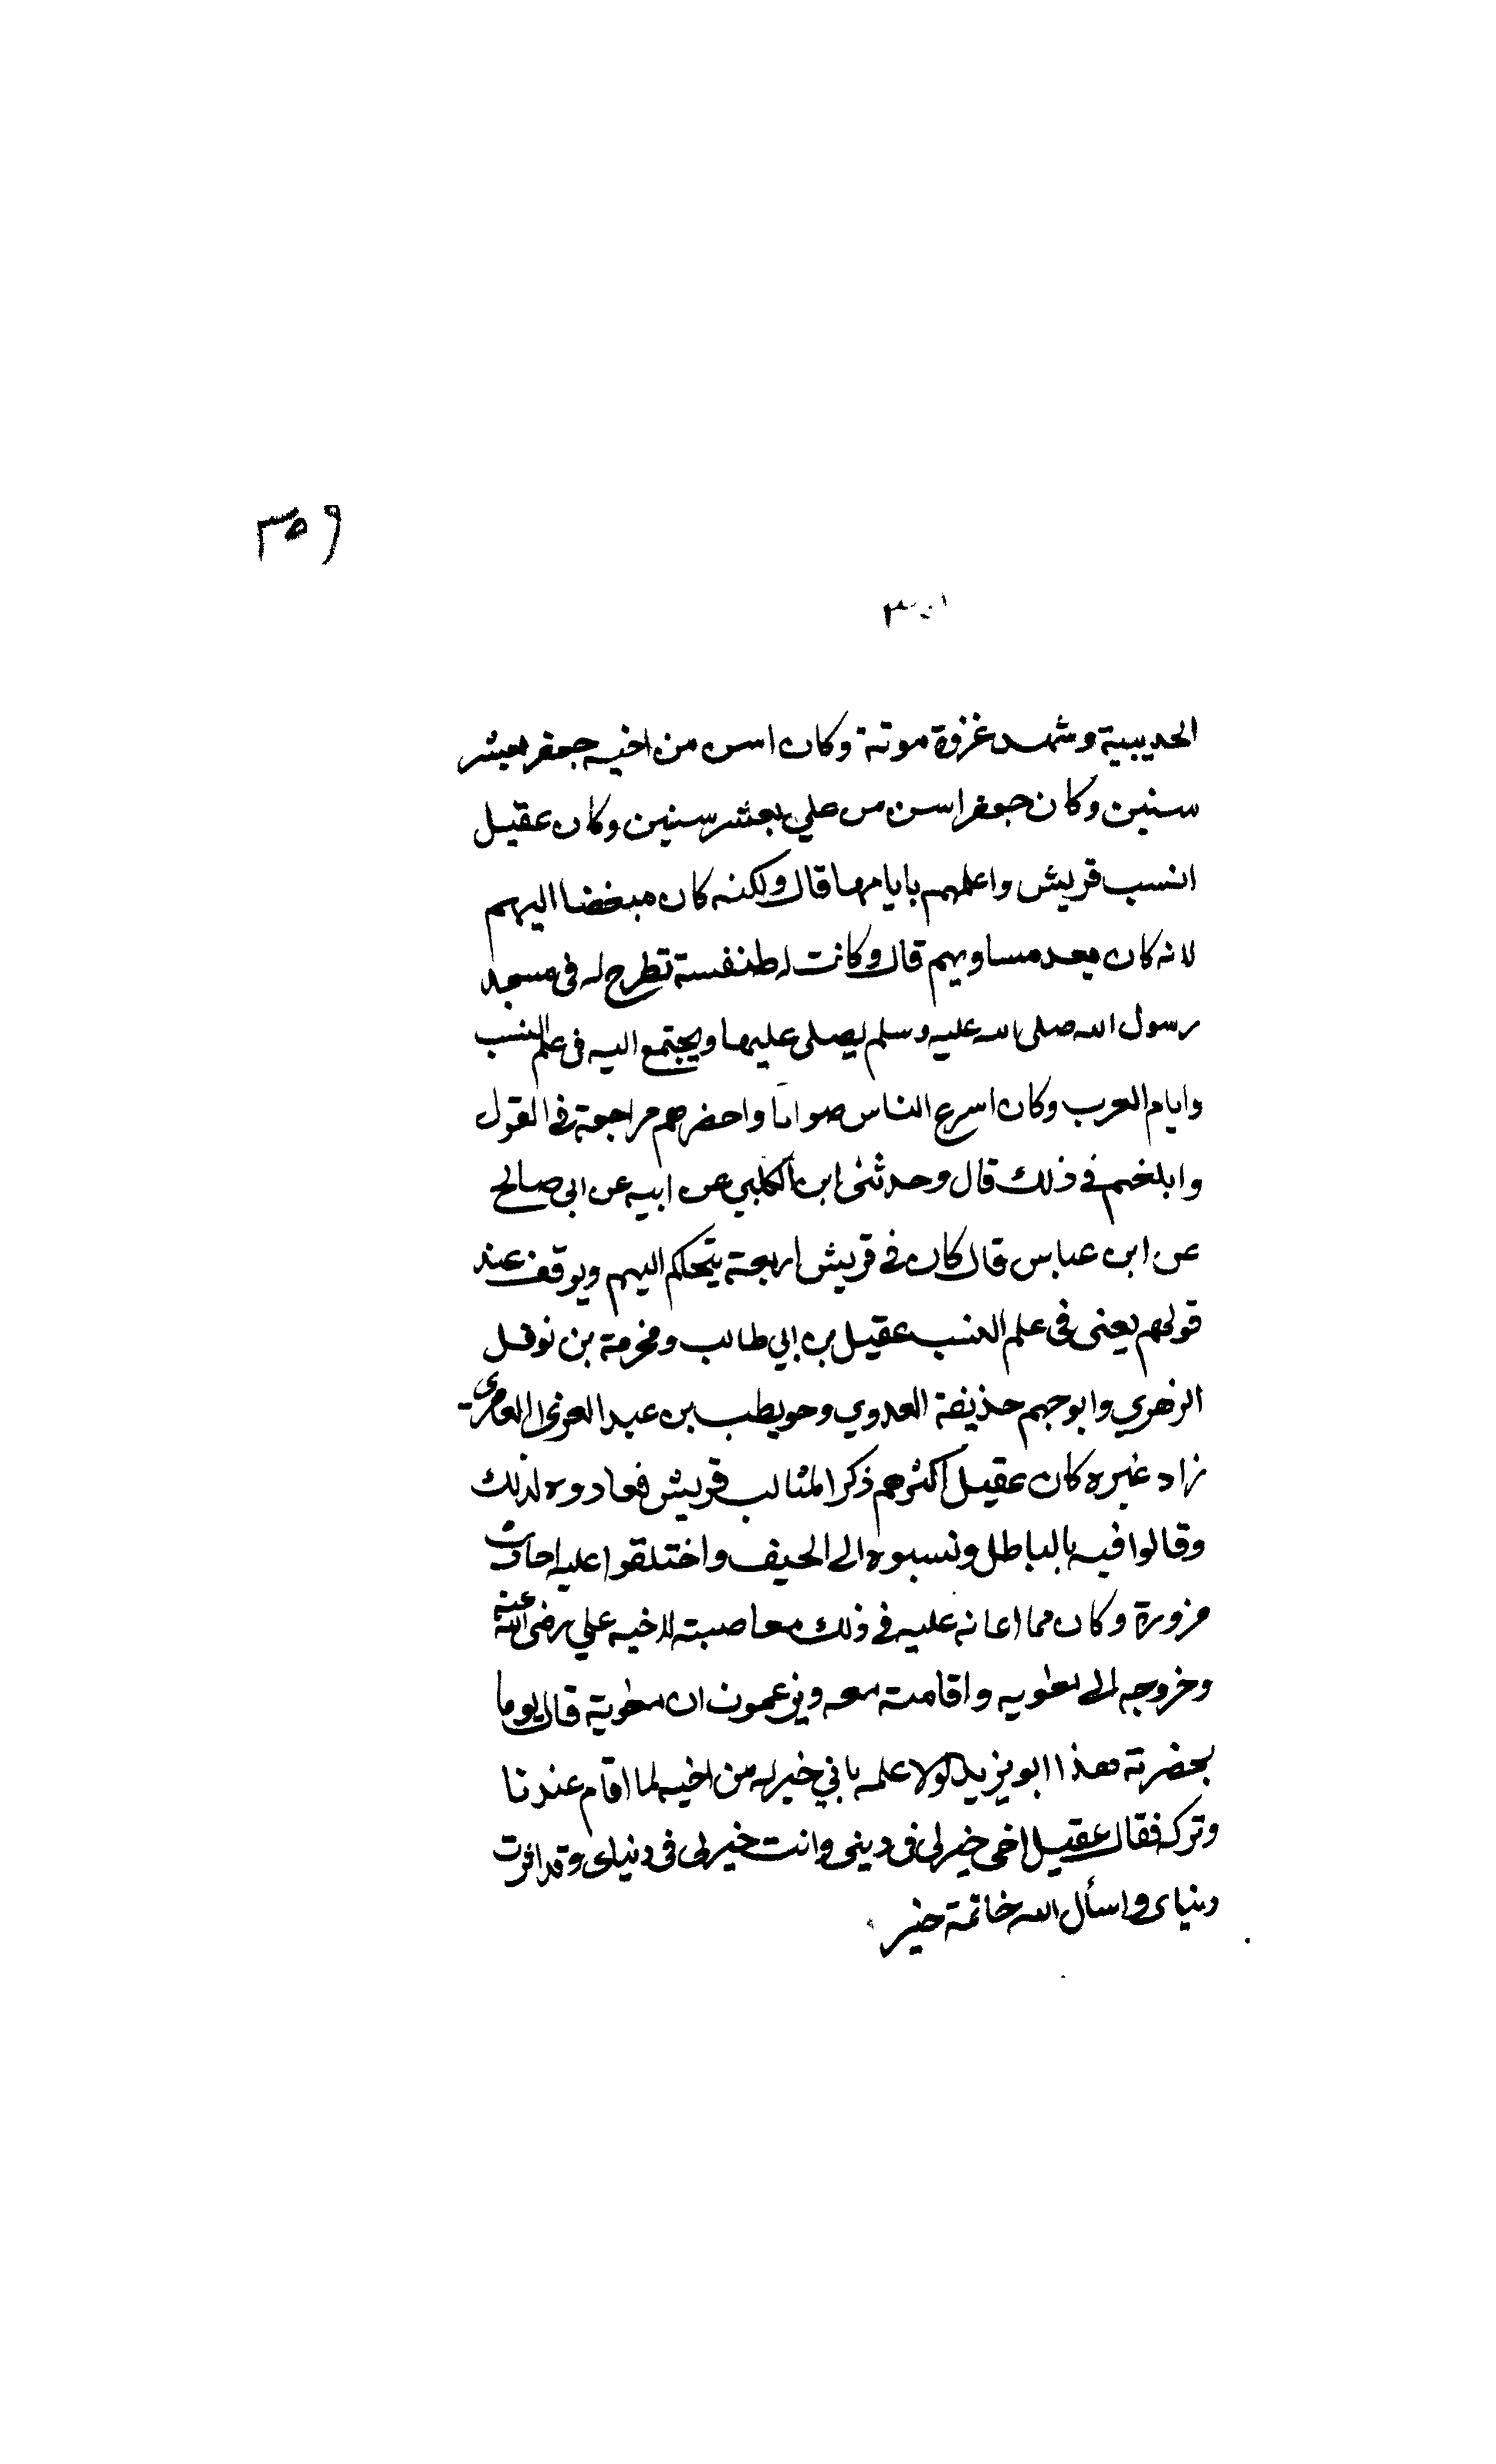 ٣٥٩
الحديبية وشهد غزوة موتة وكان اسن من اخيه جعفر بعشر
سنين وكان جعفر اسن من علي بعشر سنين وكان عقيل
انسب قريش واعلمهم بايامها قال ولكنه كان مبغضا اليهم
لانه كان يعد مساويهم قال وكانت له طنفسة تطرح له فى مسجد
رسول الله صلى الله عليه وسلم يصلى عليها ويجتمع اليه فى علم النسب
وايام العرب وكان اسرع الناس صوابا واحضرهم مراجعة فى القول
وابلغهم في ذلك قال وحدثنى ابن الكلبي عن ابيه عن ابى صالح
عن ابن عباس قال كان في قريش اربعة يتحاكم اليهم ويوقف عند
قولهم يعنى فى علم النسب عقيل بن ابي طالب ومخرمة بن نوفل
الزهري وابو جهم حذيفة العدوي وحويطب بن عبد العزى العامرى
زاد غيره كان عقيل اكثرهم ذكرا لمثالب قريش فعادوه لذلك
وقالوا فيه بالباطل ونسبوه الى الحيف واختلقوا عليه احاديث
مزورة وكان مما اعانه عليه في ذلك معاصبته لاخيه علي رضى الله عنه
وخروجه الى معوية واقامته معه ويزعمون ان معوية قال يوما
بحضرته هذا ابو يزيد لولا علمه باني خير له من اخيه لما اقام عندنا
وتركه فقال عقيل اخى خير لى فى دينى وانت خير لى فى دنياى وقد اثرت
دنياى واسأل الله خاتمة خير